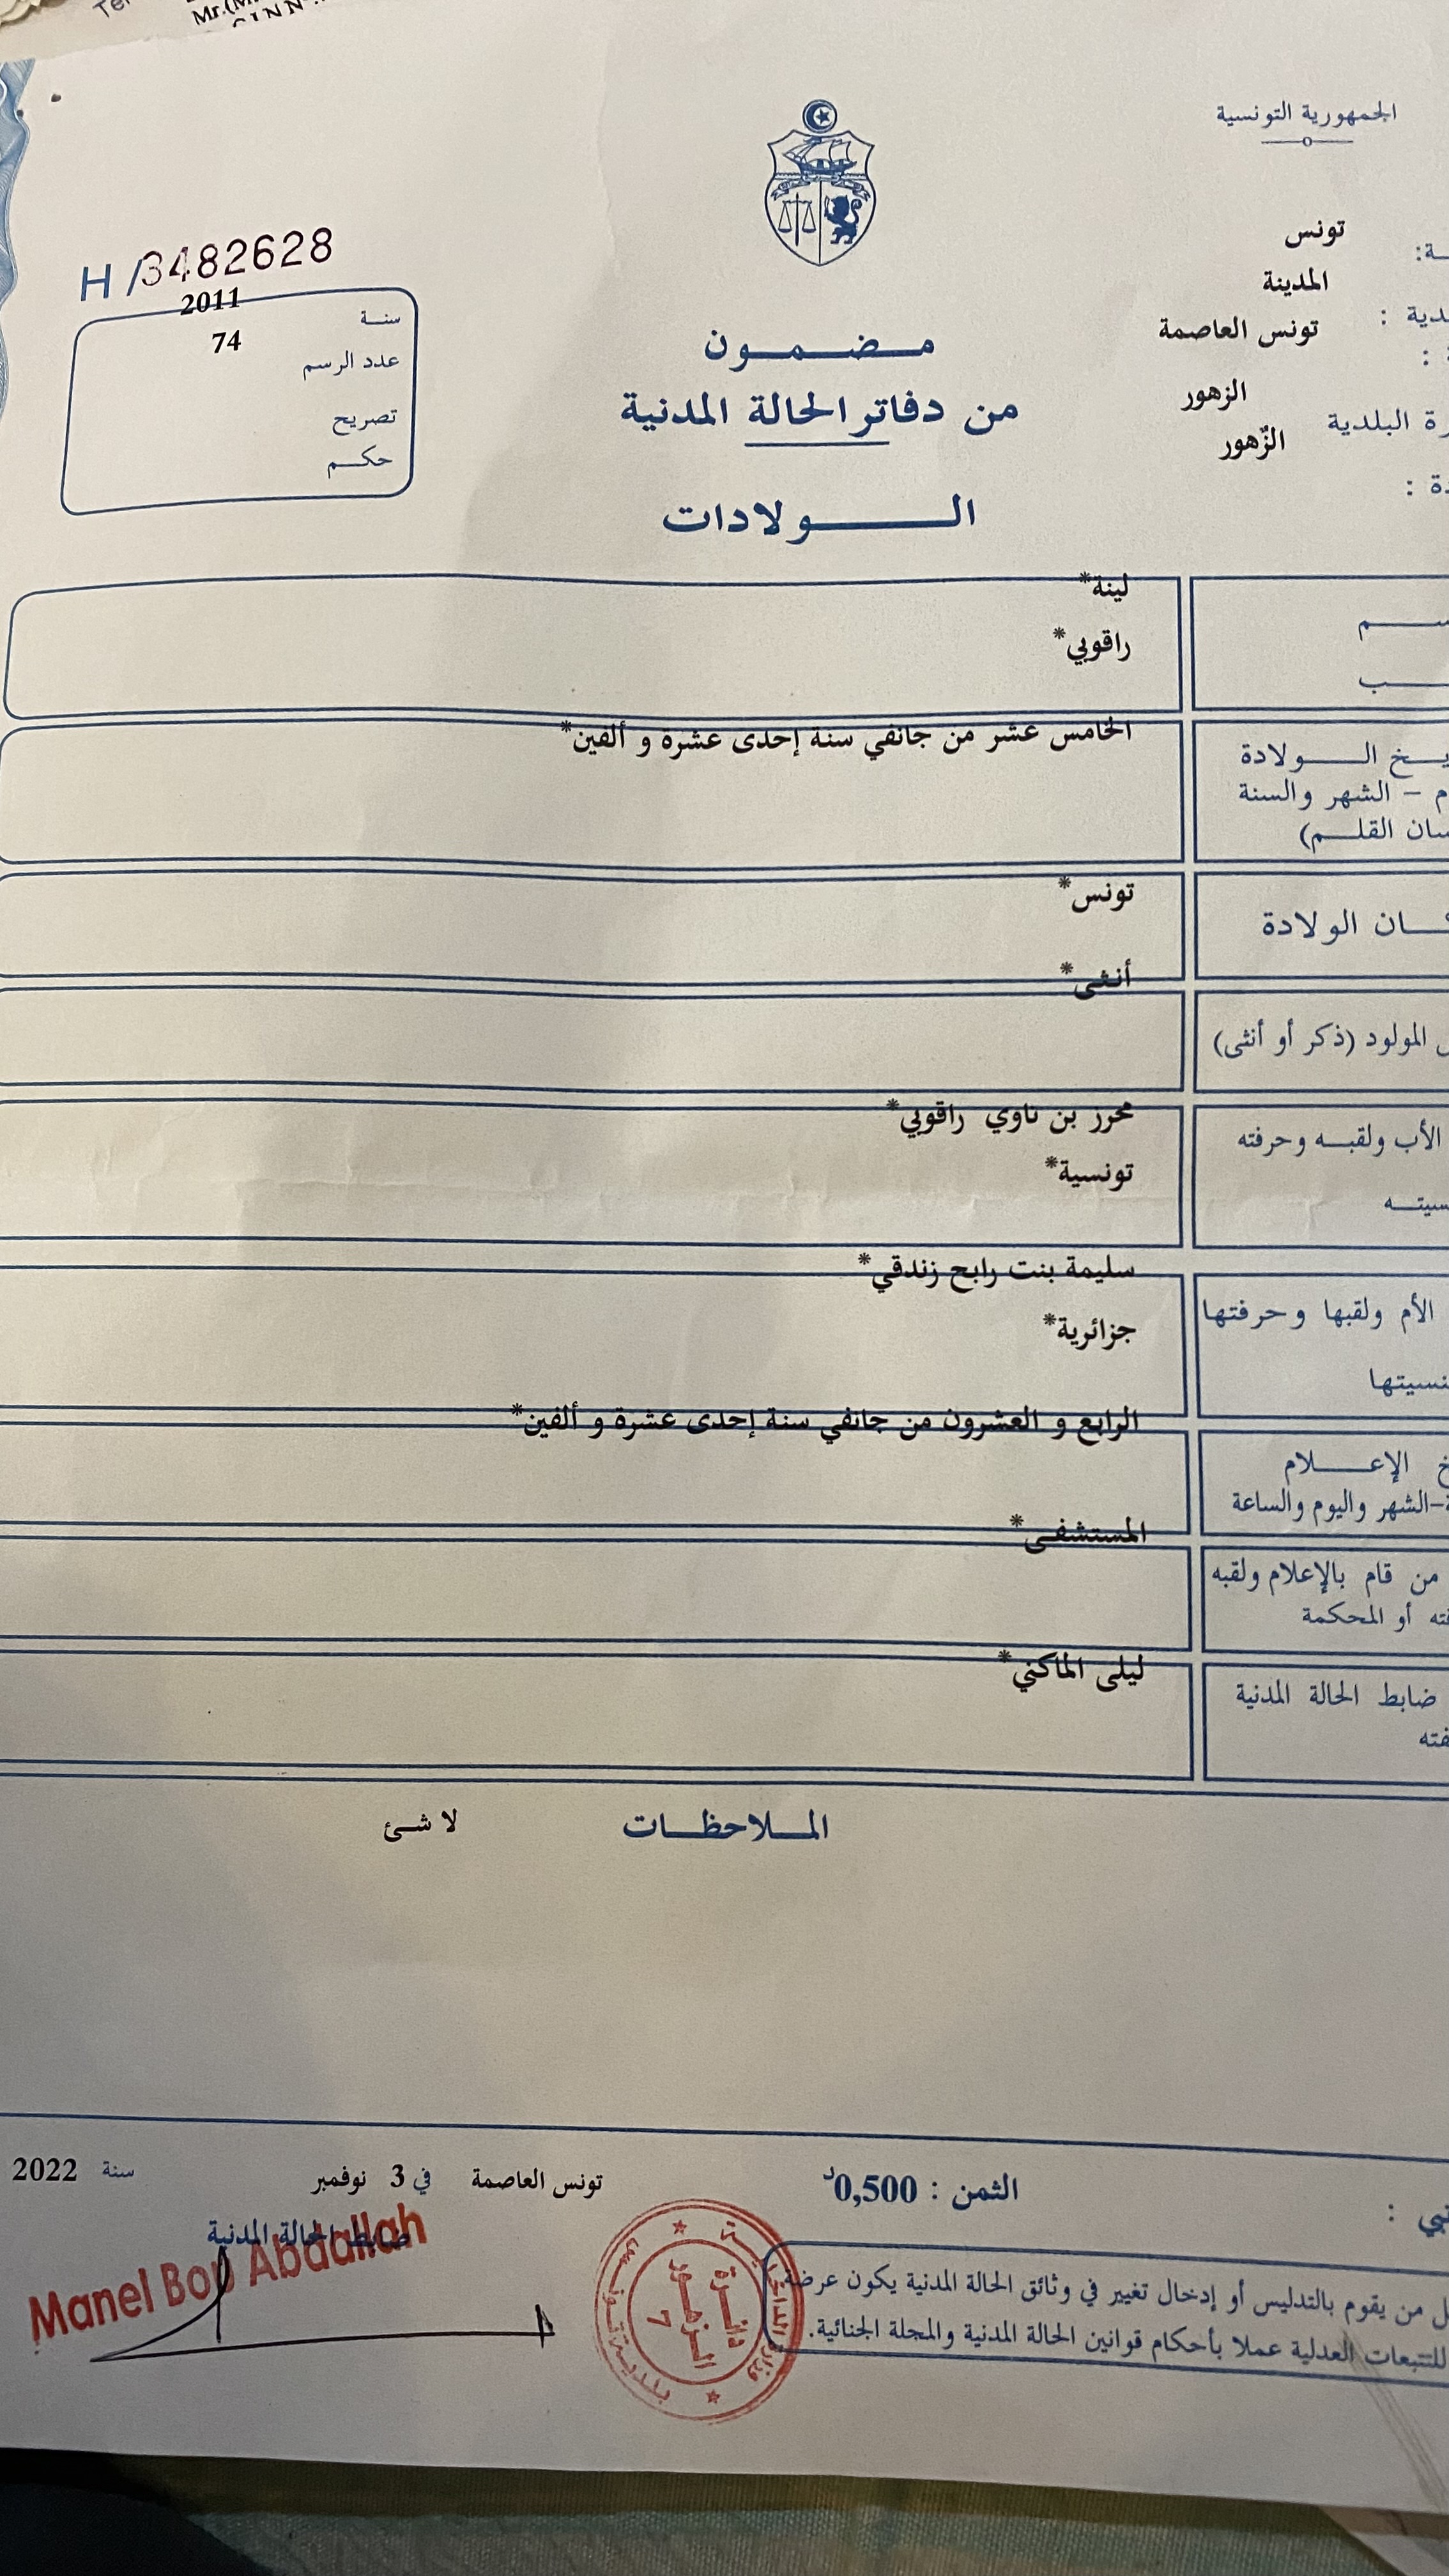 Mr.(M
الجمهورية التونسية
تونس
المدينة
تونس العاصمة
الزهور
البلدية
الزّهور
H/3482628
سنة 2011
عدد الرسم 74
تصريح
حكم
مضمون
من دفاتر الحالة المدنية
الولادات
لينة*
راقوبي*
الولادة
الخامس عشر من جانفي سنة إحدى عشرة و ألفين*
– الشهر والسنة
القلم)
الولادة
تونس*
أنثى*
المولود (ذكر أو أنثى)
الأب ولقبه وحرفته
محرز بن ناوي راقوبي*
تونسية*
سليمة بنت رابح زندقي*
الأم ولقبها وحرفتها
جزائرية*
الرابع و العشرون من جانفي سنة إحدى عشرة و ألفين*
الإعلام
-الشهر واليوم والساعة
المستشفى*
من قام بالإعلام ولقبه
أو المحكمة
ليلى الماكني*
ضابط الحالة المدنية
الملاحظات لا شئ
الثمن : 0,500د
تونس العاصمة في 3 نوفمبر سنة 2022
ضابط الحالة المدنية
Manel Bou Abdallah
دائرة
الزهور
7
من يقوم بالتدليس أو إدخال تغيير في وثائق الحالة المدنية يكون عرضة
للتتبعات العدلية عملا بأحكام قوانين الحالة المدنية والمجلة الجنائية.